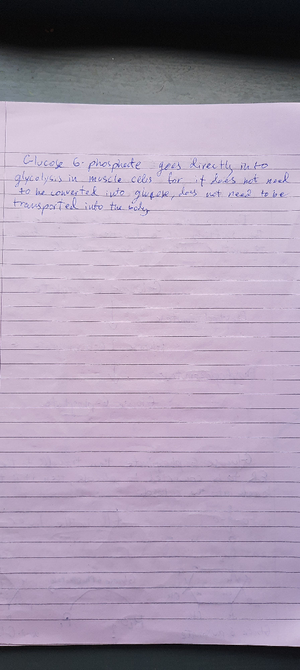 Glucose 6-phosphate goes directly into
glycolysis in muscle cells for it does not need
to be converted into glucose, does not need to be
transported into the body